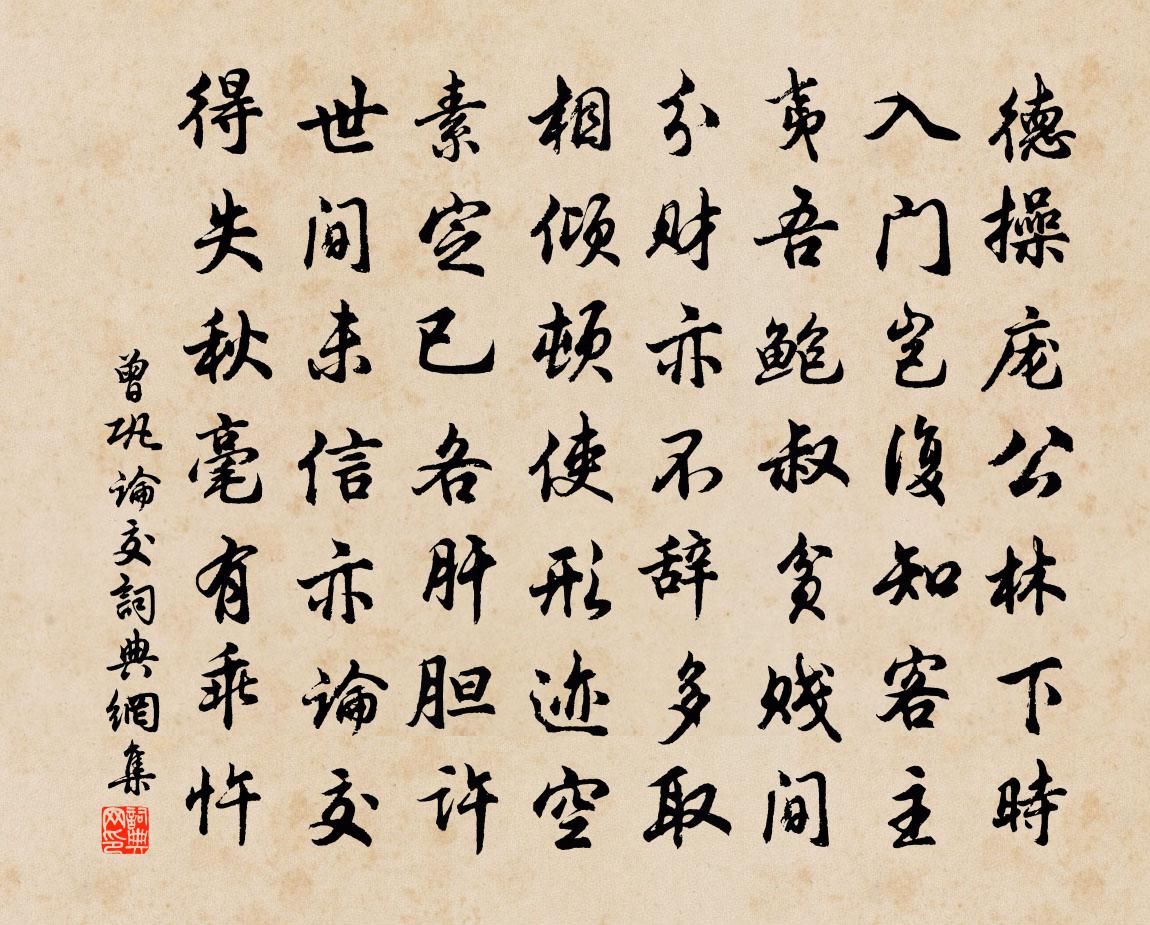 德操庞公林下時
入门岂復知客主
夷吾鲍叔贫贱间
分财亦不辞多取
相倾顿使形迹空
素定已各肝胆许
世间未信亦論交
得失秋毫有乖忤
曾巩論交詞典網集
詞典网印